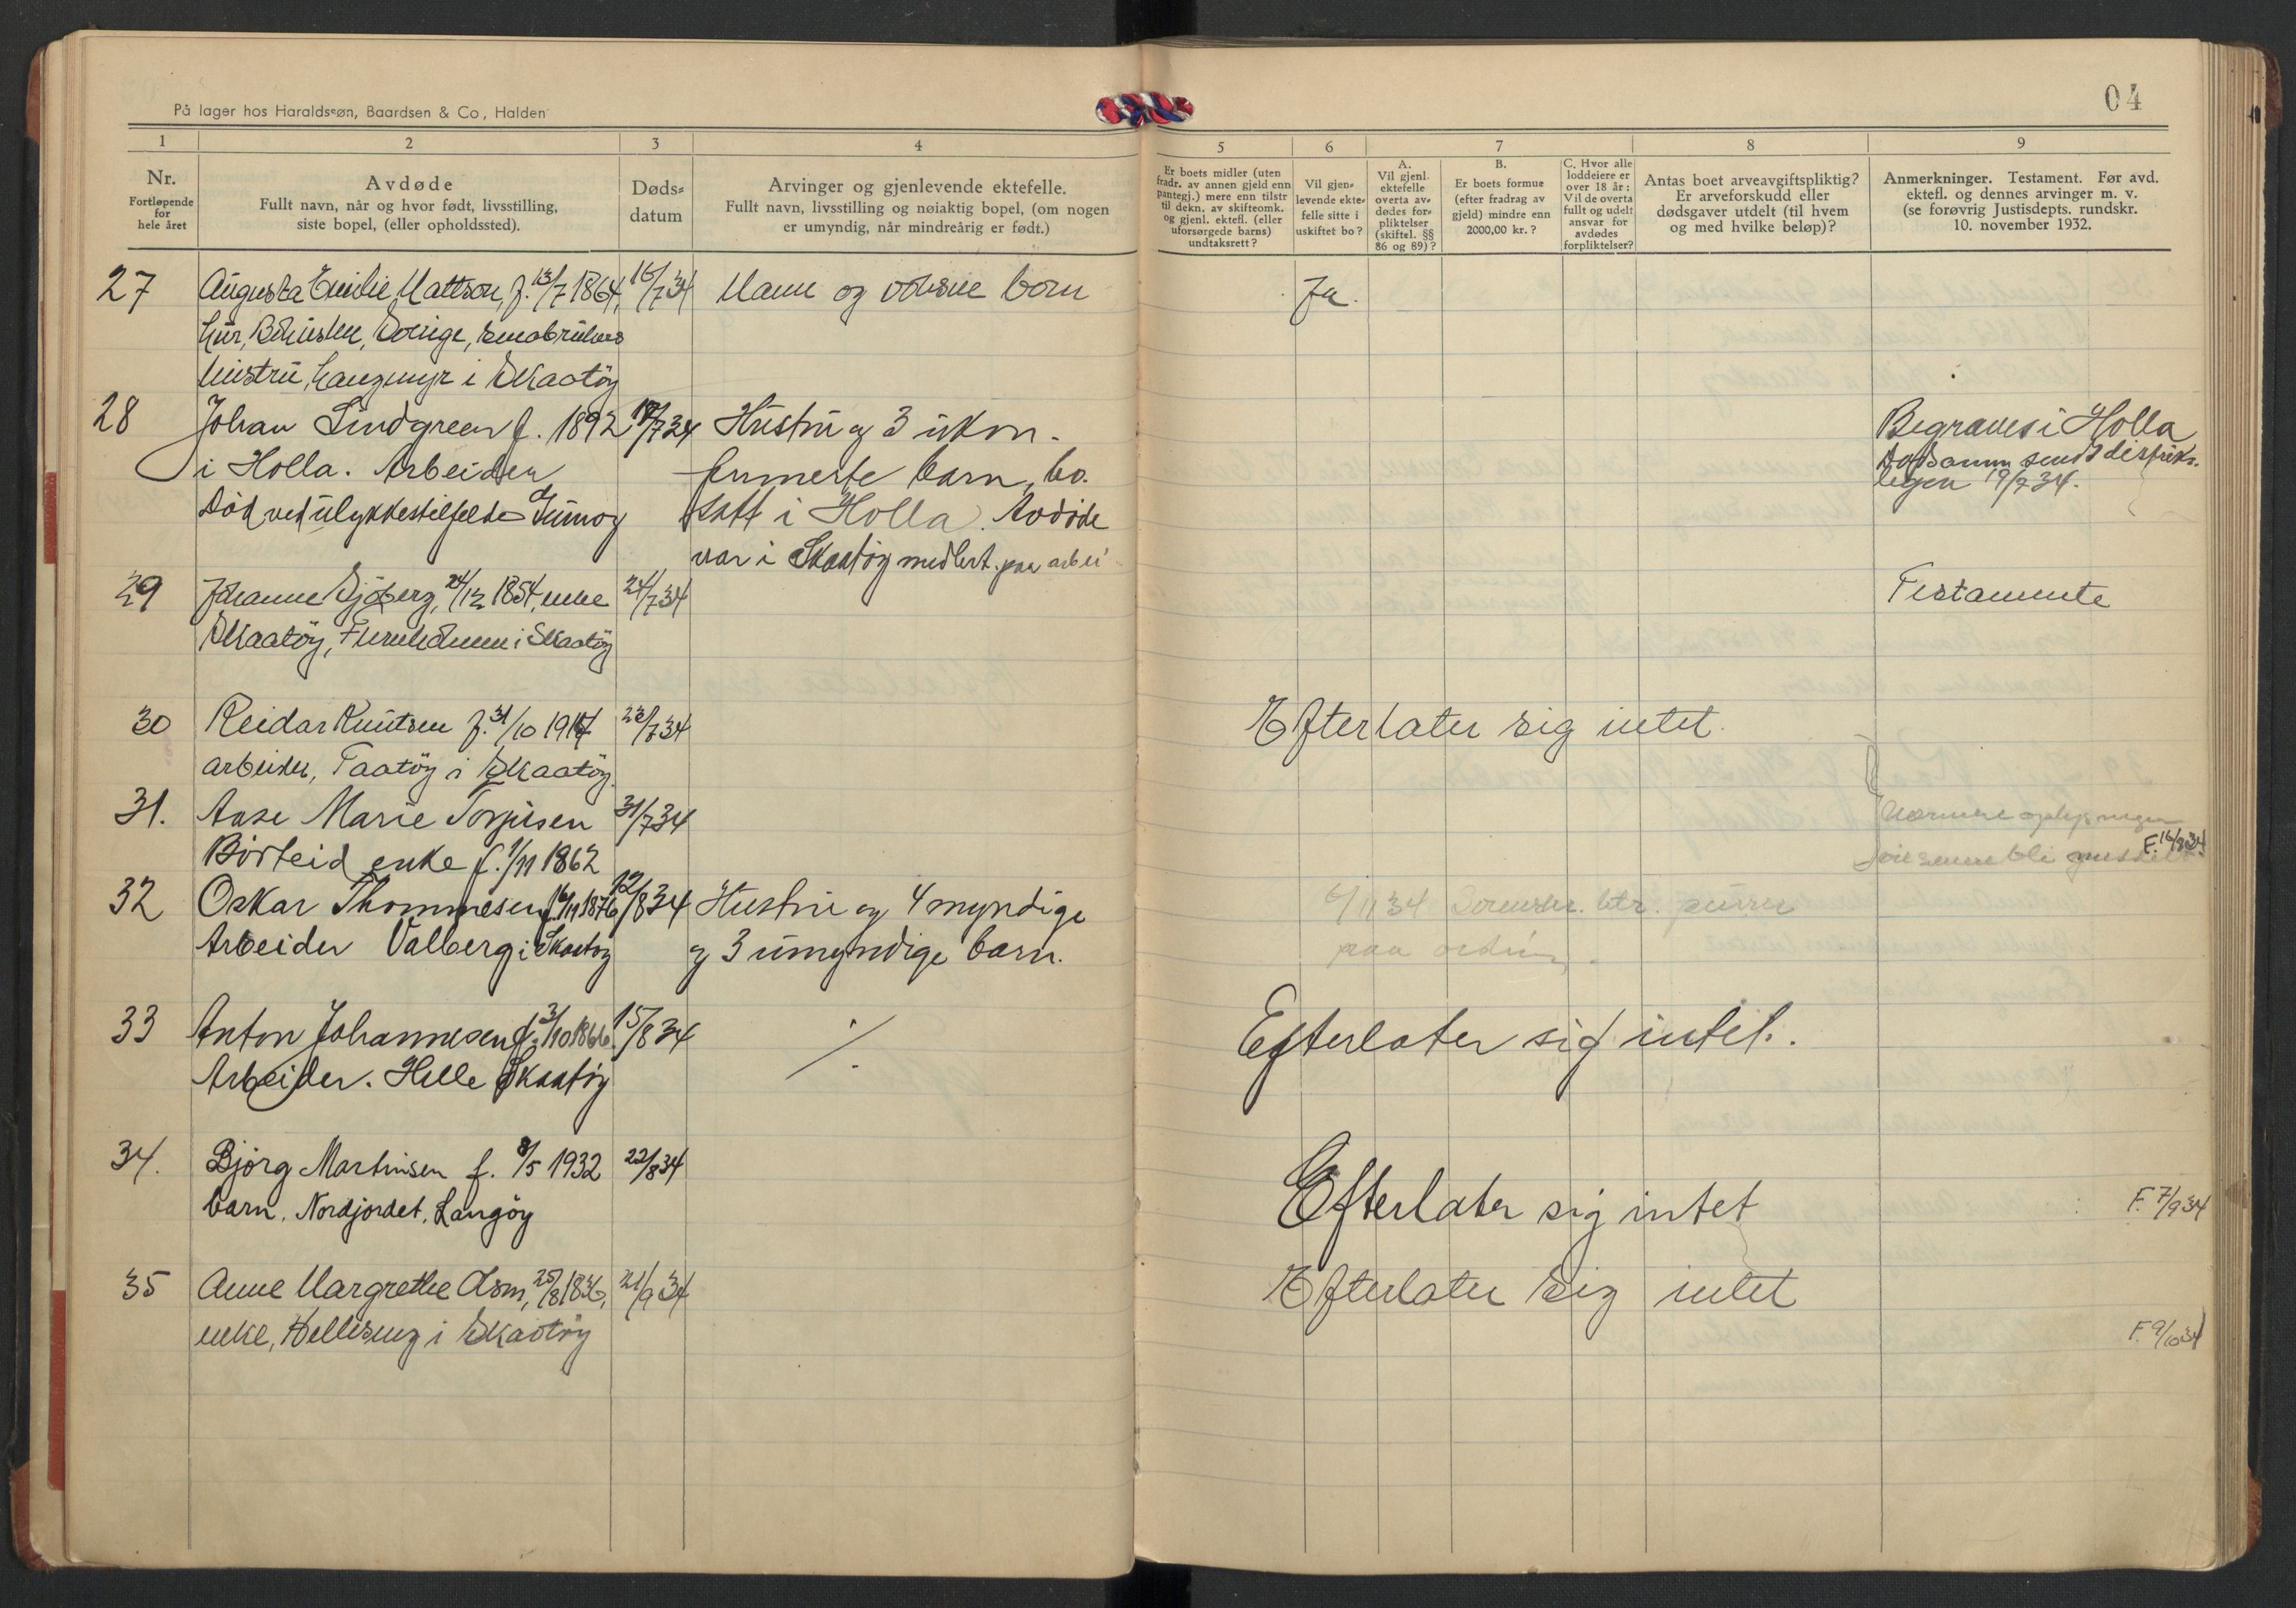 På lager hos Haraldssøn, Baardsen & Co, Halden
04
1
2
3
4
5
6
7
8
9
Nr.
Fortløpende
for
hele året
Avdøde
Fullt navn, når og hvor født, livsstilling,
siste bopel, (eller opholdssted).
Døds-
datum
Arvinger og gjenlevende ektefelle.
Fullt navn, livsstilling og nøiaktig bopel, (om nogen
er umyndig, når mindreårig er født.)
Er boets midler (uten
fradr. av annen gjeld enn
pantegj.) mere enn tilstr
til dekn. av skifteomk.
og gjenl. ektefl. (eller
uforsørgede barns)
undtaksrett?
Vil gjen-
levende ekte-
felle sitte i
uskiftet bo?
A.
Vil gjenl.
ektefelle
overta av-
dødes for-
pliktelser
(skiftel. §§
86 og 89)?
B.
Er boets formue
(efter fradrag av
gjeld) mindre enn
2000,00 kr.?
C. Hvor alle
loddeiere er
over 18 år:
Vil de overta
fullt og udelt
ansvar for
avdødes
forpliktelser?
Antas boet arveavgiftspliktig?
Er arveforskudd eller
dødsgaver utdelt (til hvem
og med hvilke beløp)?
Anmerkninger. Testament. Før avd.
ektefl. og dennes arvinger m. v.
(se forøvrig Justisdepts. rundskr.
10. november 1932.
27 Augusta Emilie Mattson, f. 13/7 1864, 16/7 34 Mann og voksne born Ja.
Sverige,
hustru, Langmyr i Skaatöy
28 Johan Lindgreen f. 1892 18/7 34 Hustru og 3 ukon- Begraves i Holla
i Holla. Arbeider firmerte barn, bo- Dødsanm. sendt distrikts-
Död ved ulykkestilfelde satt i Holla. Avdöde legen 19/7 34.
var i Skaatöy midlert. paa arbei
29 Johanne Sjöberg, 24/12 1854, enke 24/7 34 Testamente
Skaatöy, i Skaatöy
30 Reidar Knutsen f. 31/10 1917 23/7 34 Efterlater sig intet.
arbeider, Taatöy i Skaatöy
31. Aase Marie Torjusen 31/7 34 Nærmere oplysninger
Börteid enke f. 1/11 1862 vil senere bli F. 16/8 34
32 Oskar Thommesen f. 16/11 1876 12/8 34 Hustru og 4 myndige 6/11 34
Arbeider Valberg i Skaatöy og 3 umyndige barn. paa
33 Anton Johannesen f. 3/10 1866 15/8 34 ./. Efterlater sig intet.
Arbeider. Helle Skaatöy
34. Björg Martinsen f. 8/5 1932 22/8 34 Efterlater sig intet F. 7/9 34
barn, Nordjordet, Langöy
35 Anne Margrethe Olsen, 25/8 1836, 21/9 34 Efterlater sig intet
enke, Helleseng i Skaatöy F. 9/10 34